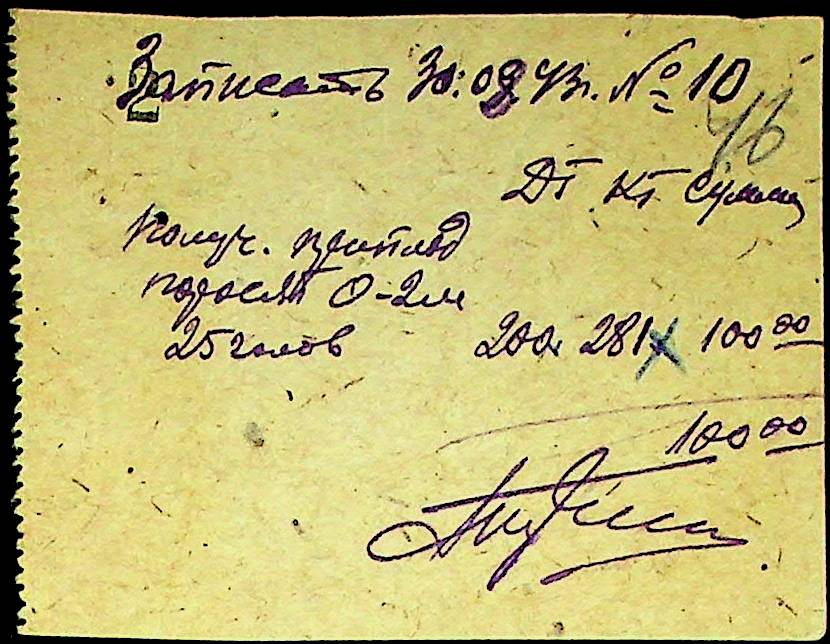 Записать 30.09.43г. № 10
46
Дт Кт Сумма
Получ. приплод
поросят 0-2м
25 голов 200 281 100 00
100 00